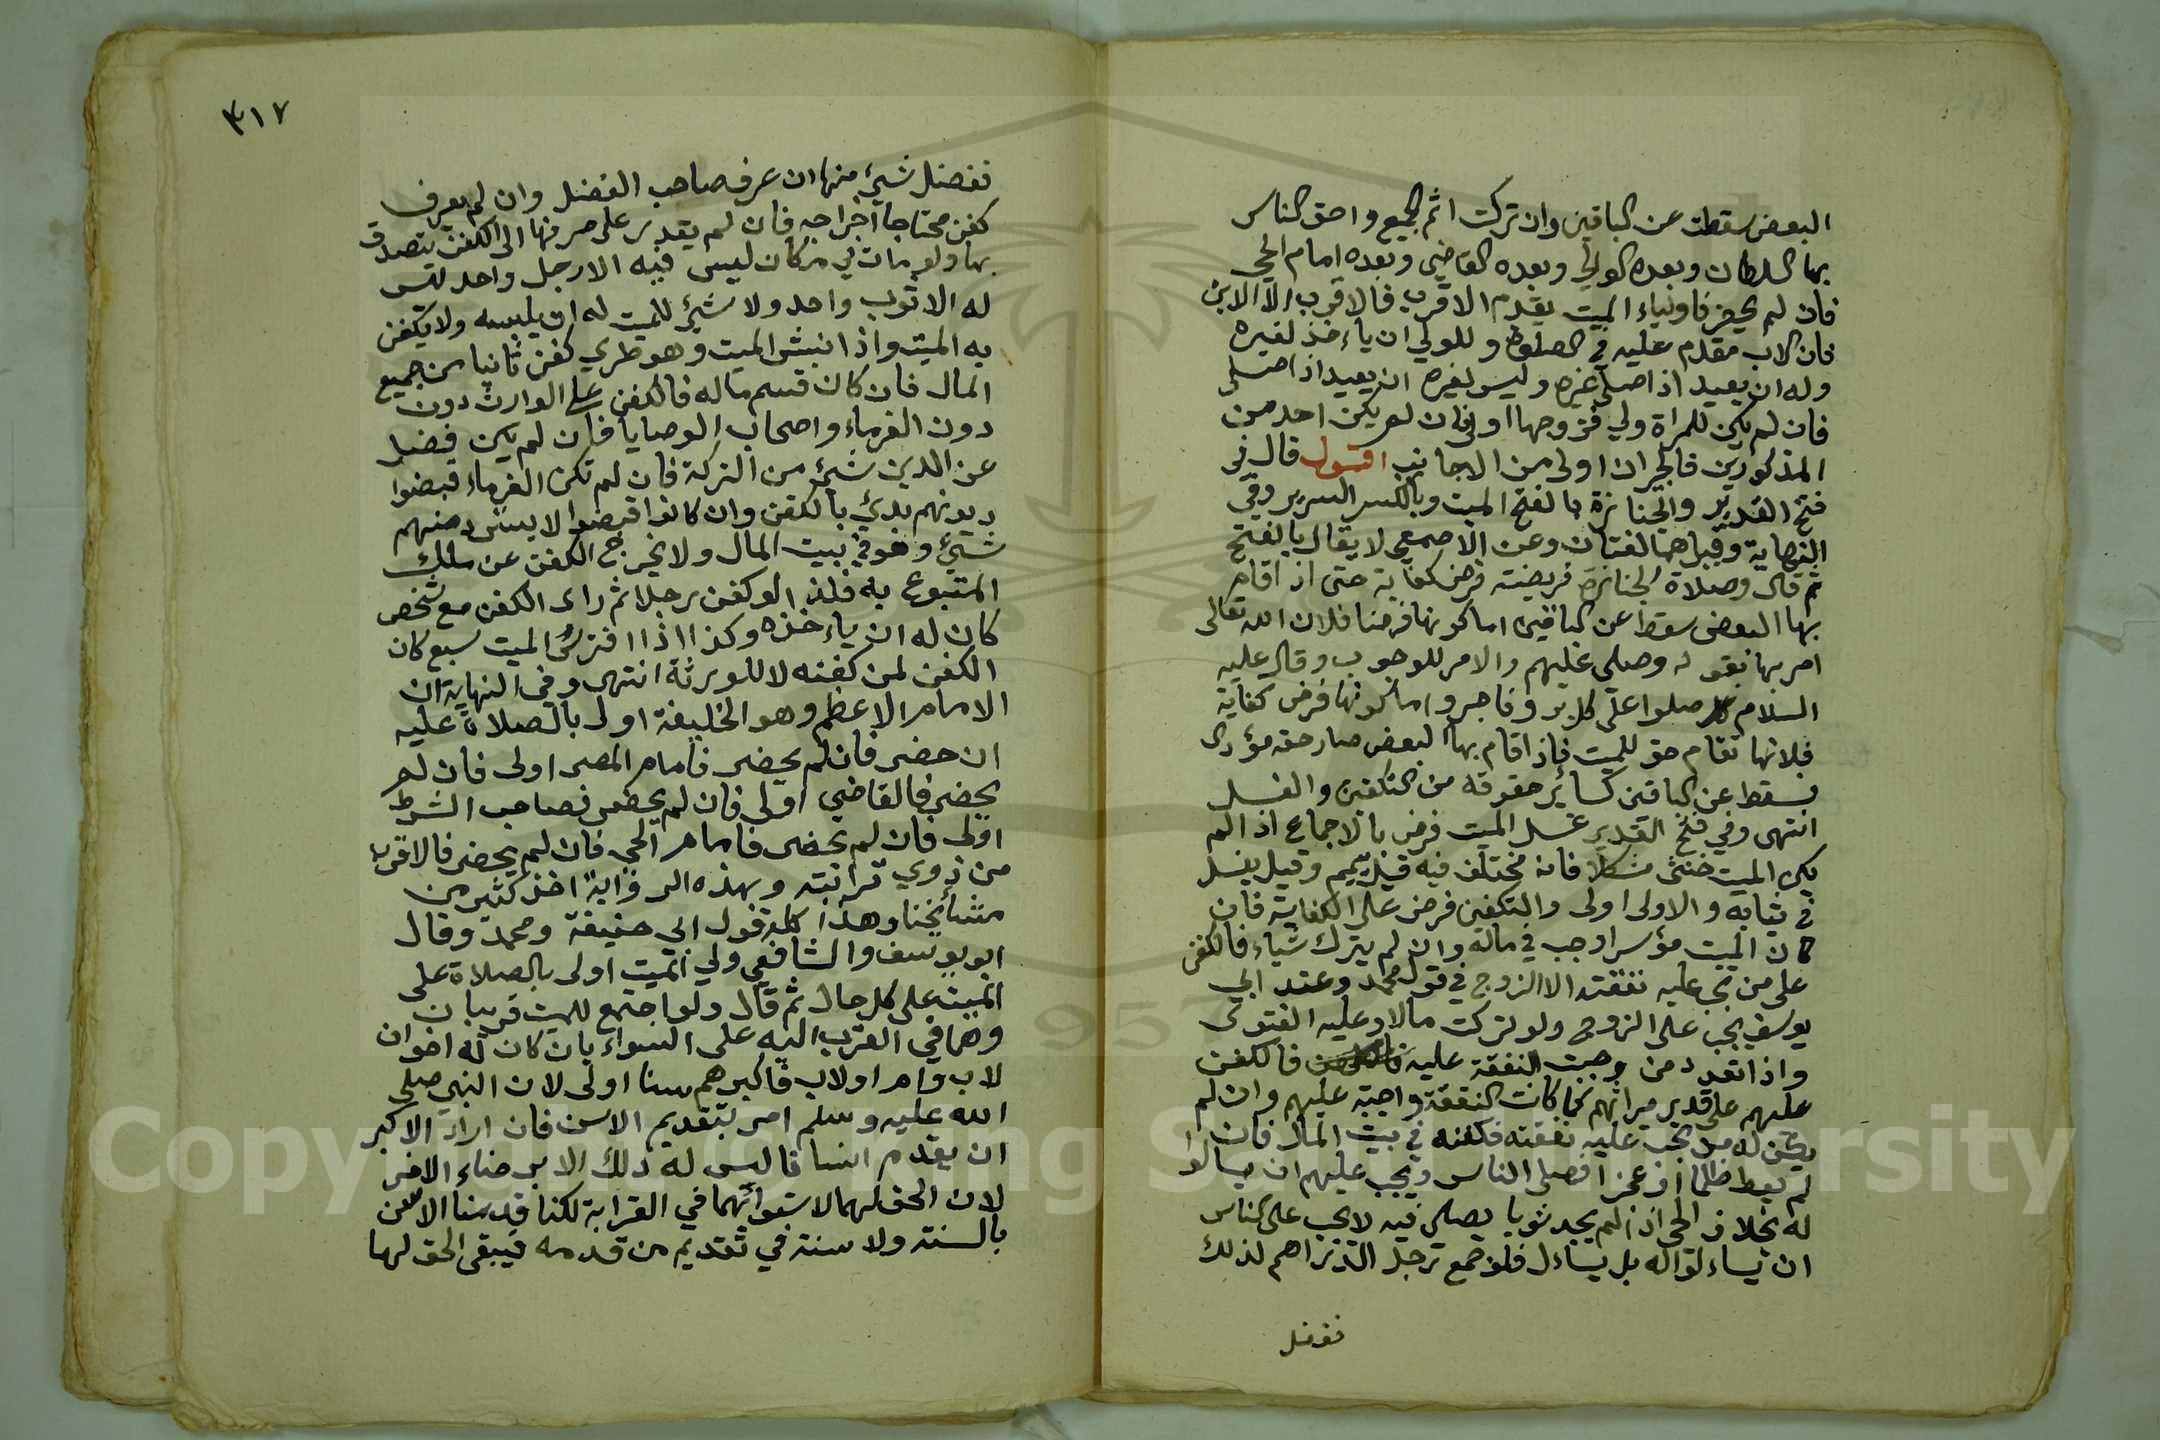 البعض سقطت عن الباقين وان تركت اثم الجميع واحق الناس
بها السلطان وبعده الوالي وبعده القاضي وبعده امام الحي
فان لم يحضر فاولياء الميت يقدم الاقرب فالاقرب الا الابن
فان الاب مقدم عليه في الصلوة وللولي ان يأخذ لغيره
وله ان يعيد اذا صلى غيره وليس لغيره ان يعيد اذا صلى
فان لم يكن للمراة ولي فزوجها اولى فان لم يكن احد من
المذكورين فالجيران اولى من الاجانب اقول قال في
فتح القدير والجنازة بالفتح الميت وبالكسر السرير وفي
النهاية وقيل هما لغتان وعن الاصمعي لا يقال بالفتح
ثم قال وصلاة الجنازة فريضته فرض كفاية حتى اذا قام
بها البعض سقط عن الباقين اما كونها فرضا فلان الله تعالى
امر بها بقوله وصلي عليهم والامر للوجوب وقال عليه
السلام صلوا على كل بر وفاجر واما كونها فرض كفاية
فلانها تقام حق للميت فاذا قام بها البعض صار حقه مؤدى
فسقط عن الباقين كسائر حقوقه من التكفين والغسل
انتهى وفي فتح القدير غسل الميت فرض بالاجماع اذا لم
يكن الميت خنثى مشكلا فانه مختلف فيه قيل ييمم وقيل يغسل
في ثيابه والاولى اولى والتكفين فرض على الكفاية فان
كان الميت مؤسرا وجب في ماله وان لم يترك شياء فالكفن
على من تجب عليه نفقته الا الزوج في قول محمد وعند ابي
يوسف يجب على الزوج ولو تركت مالا وعليه الفتوى
واذا تعدد من وجبت النفقة عليه فالكفن
عليهم على قدير ميراثهم كما كانت النفقة واجبة عليهم وان لم
يكن له من تجب عليه نفقته فكفنه في بيت المال فان
لم يعط ظلما او عجزا فعلى الناس ويجب عليهم ان يسالوا
له بخلاف الحي اذا لم يجد ثوبا يصلي فيه لا يجب على الناس
ان يساءلوا له بل يساءل فلو جمع رجل الدراهم لذلك
ففضل
٣١٧
ففضل شيئ منها ان عرف صاحب الفضل وان لم يعرف
كفن محتاجا اخراجه فان لم يقدر على صرفها الى الكفن يتصدق
بها ولو مات في مكان ليس فيه الا رجل واحد ليس
له الا ثوب واحد ولا شيئ للميت له ان يلبسه ولا يكفن
به الميت واذا نبش الميت وهو طري كفن ثانيا من جميع
المال فان كان قسم ماله فالكفن على الوارث دون
دون الغرماء واصحاب الوصايا فان لم يكن فضل
عن الدين شيئ من التركة فان لم تكن الغرماء قبضوا
ديونهم بدئ بالكفن وان كانوا قبضوا لا يسترد منهم
شيئ وهو في بيت المال ولا يخرج الكفن عن ملك
المتبوع به فلذا لو كفن رجلا ثم راى الكفن مع شخص
كان له ان يأخذه وكذا اذا افترس الميت سبع كان
الكفن لمن كفنه لا للورثة انتهى وفي النهاية ان
الامام الاعظم وهو الخليفة اولى بالصلاة عليه
ان حضر فان لم يحضر فامام المصر اولى فان لم
يحضر فالقاضي اولى فان لم يحضر فصاحب الشرط
اولى فان لم يحضر فامام الحي فان لم يحضر فالاقرب
من ذوي قرابته وبهذه الرواية اخذ كثير من
مشائخنا وهذا كله قول ابي حنيفة ومحمد وقال
ابو يوسف والشافعي ولي الميت اولى بالصلاة على
الميت على كل حال ثم قال ولو اجتمع للميت قريبان
وهما في القرب اليه على السواء بان كان له اخوان
لاب وام او لاب فاكبرهم سنا اولى لان النبي صلى
الله عليه وسلم امر بتقديم الاسن فان اراد الاكبر
ان يقدم انسانا ليس له ذلك الا برضاء الاخر
لان الحق لهما لاستوائهما في القرابة لكنا قدمنا الاسن
بالسنة ولا سنة في تقديم من قدمه فيبقى الحق لهما
Copyright © King Saud University
1957